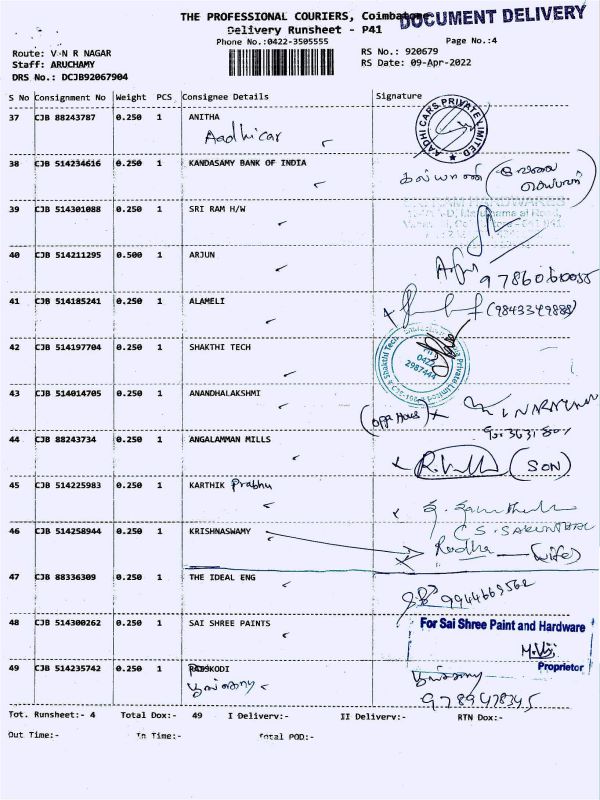 THE PROFESSIONAL COURIERS, Coimbatore
DOCUMENT DELIVERY
Delivery Runsheet - P41
Phone No.:0422-3505555
Page No.:4
Route: V N R NAGAR
RS No.: 920679
Staff: ARUCHAMY
RS Date: 09-Apr-2022
DRS No.: DCJB92067904
S No Consignment No Weight PCS Consignee Details Signature
37 CJB 88243787 0.250 1 ANITHA
Aadhicar
AADHI CARS PRIVATE LIMITED
38 CJB 514234616 0.250 1 KANDASAMY BANK OF INDIA
கல்யாணி
39 CJB 514301088 0.250 1 SRI RAM H/W
40 CJB 514211295 0.500 1 ARJUN
Arjun
97860610055
41 CJB 514185241 0.250 1 ALAMELI
(9843349888)
42 CJB 514197704 0.250 1 SHAKTHI TECH
Shakthi Tech Private Limited
0422
2987444
43 CJB 514014705 0.250 1 ANANDHALAKSHMI
(opp House)
44 CJB 88243734 0.250 1 ANGALAMMAN MILLS
(SON)
45 CJB 514225983 0.250 1 KARTHIK Prabhu
46 CJB 514258944 0.250 1 KRISHNASWAMY
Radha (Wife)
47 CJB 88336309 0.250 1 THE IDEAL ENG
9944669562
48 CJB 514300262 0.250 1 SAI SHREE PAINTS
For Sai Shree Paint and Hardware
Proprietor
49 CJB 514235742 0.250 1
9789478345
Tot. Runsheet:- 4 Total Dox:- 49 I Delivery:- II Delivery:- RTN Dox:-
Out Time:- In Time:- Total POD:-